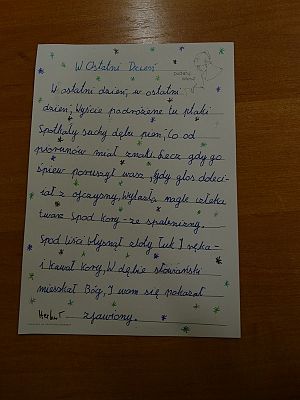 W Ostatni Dzień
W ostatni dzień, w ostatni
dzień, Wyście podróżene tu ptaki
Spotkały suchy dębu pien, Co od
piorunów miał znaki. Lecz gdy go
śpiew poruszył wasz, Gdy głos doleci-
ał z ojczyzny, Wylazła nagle człeka
twarz Spod kory - ze spalenizny.
Spod liścia błysnął złoty łuk I ręka-
i kawał kory, W dębie słowiański
mieszkał Bóg, I wam się pokazał
zjawiony.